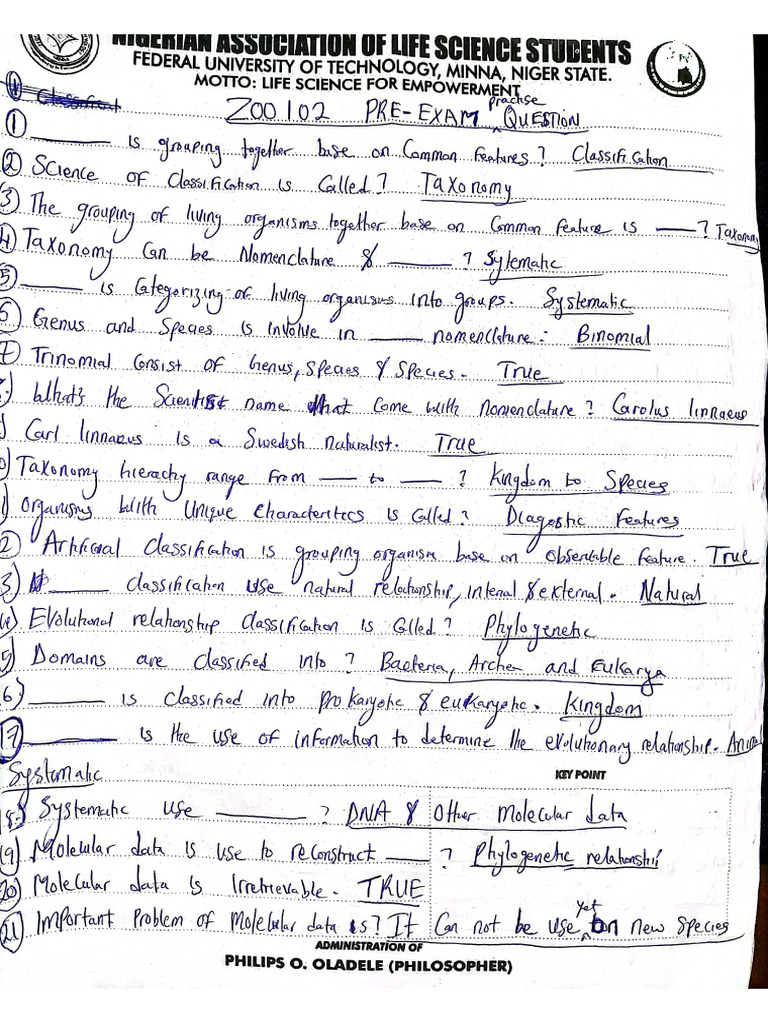 NIGERIAN ASSOCIATION OF LIFE SCIENCE STUDENTS
FEDERAL UNIVERSITY OF TECHNOLOGY, MINNA, NIGER STATE.
MOTTO: LIFE SCIENCE FOR EMPOWERMENT
ZOO102 PRE-EXAM practise QUESTION
① ______ is grouping together base on Common features? Classification
② Science of Classification is Called? Taxonomy
③ The grouping of living organisms together base on Common feature is ____? Taxonomy
4 Taxonomy Can be Nomenclature & ______? Sytematic
5 ______ is Categorizing of living organisms into groups. Systematic
6 Genus and Species is involve in ______ nomenclature. Binomial
7 Trinomial Consist of Genus, species & species. True
What's the Scientist name that come with nomenclature? Carolus linnaeus
Carl linnaeus is a Swedish naturalist. True
0) Taxonomy hierachy range from ___ to ___? Kingdom to Species
1) Organisms with Unique Characteritics is Called? Diagostic Features
2) Artificial Classification is grouping organism base on observable feature. True
3) ______ classification use natural relationship, internal & external. Natural
4) Evolutional relationship classification is Called? Phylogenetic
5) Domains are classified into? Bacteria, Archea and Eukarya
6) ______ is classified into prokaryotic & eukaryotic. Kingdom
17 ______ is the use of information to determine the evolutionary relationship. Animal
Systematic
KEY POINT
18 Systematic use ______? DNA & Other molecular data
19 Molecular data is use to reconstruct ____? Phylogenetic relationship
20 Molecular data is Irretrievable. TRUE
21 Important Problem of Molecular data is? It Can not be use yet on new species
ADMINISTRATION OF
PHILIPS O. OLADELE (PHILOSOPHER)